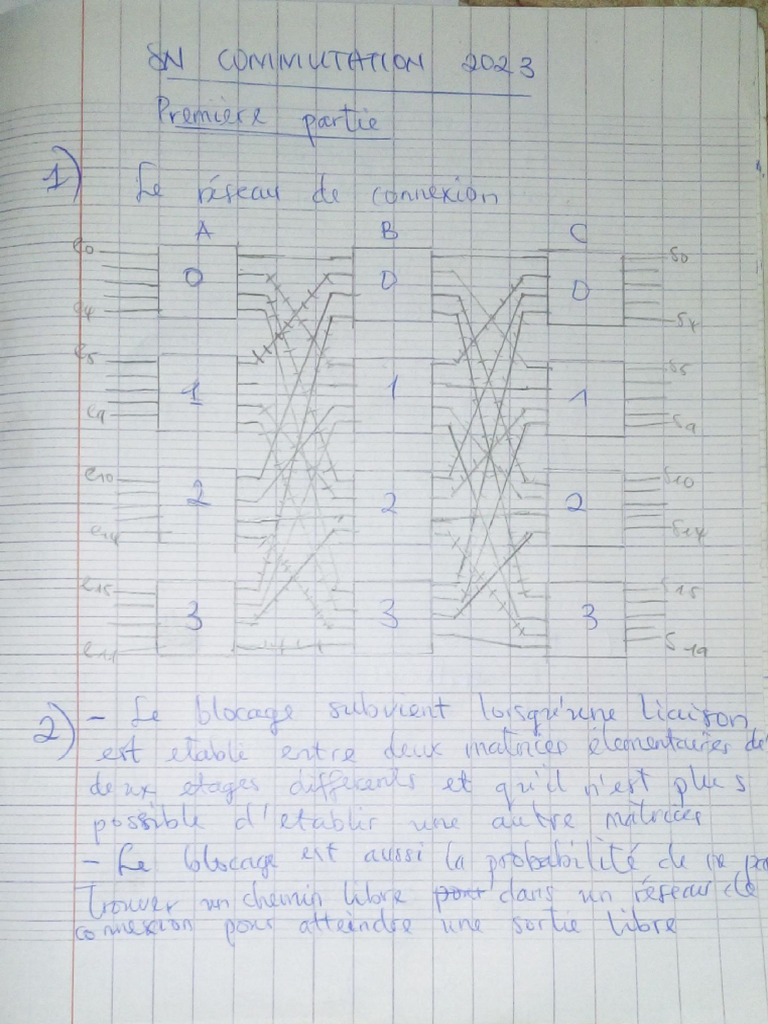 SN COMMUTATION 2023
Première partie
1) Le réseau de connexion
A B C
e0 0 0 0 s0
e4 s4
e5 1 1 1 s5
e9 s9
e10 2 2 2 s10
e14 s14
e15 3 3 3 s15
e19 s19
2) - Le blocage subvient lorsqu'une liaison
est etablé entre deux matrices élementaires de
deux etages différents et qu'il n'est plus
possible d'etablir une autre matrices
- Le blocage est aussi la probabilité de ne pa
Trouver un chemin libre dans un réseau de
connexion pour atteindre une sortie libre